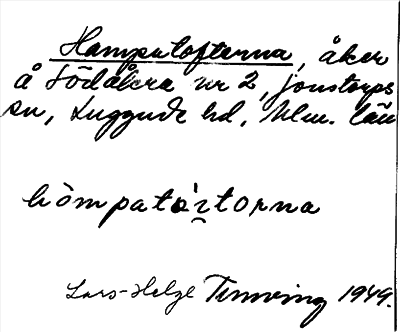 Hampatofterna, åker
å Södåkra nr 2, Jonstorps
sn, Luggude hd, Mlm. län
hòmpatòftorna
Lars-Helge Tunving 1949.